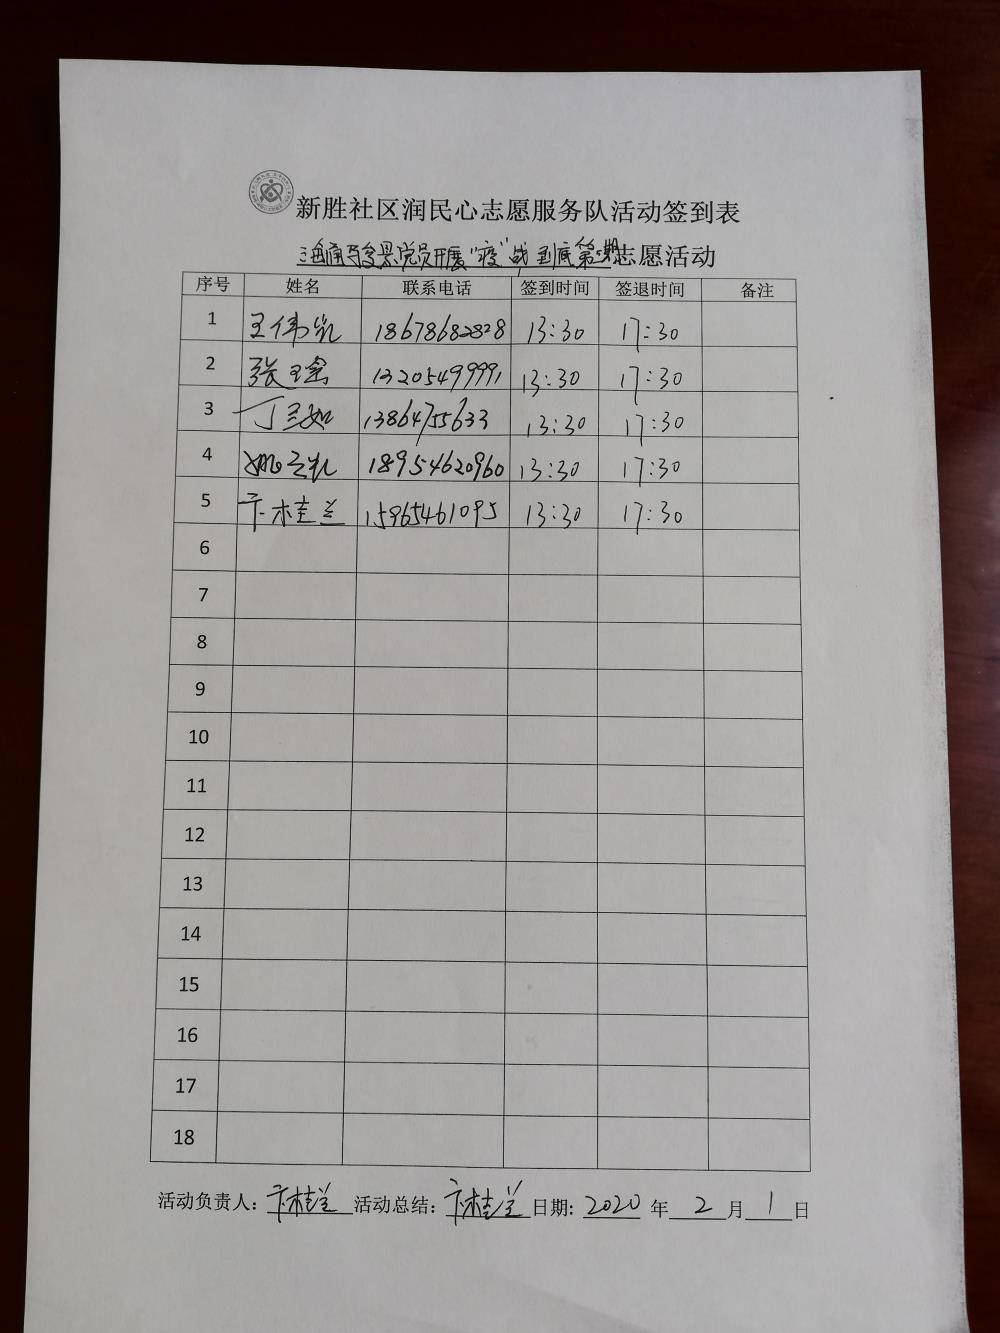 新胜社区润民心志愿服务队活动签到表
海通与全景党员开展“疫”战到底第 期志愿活动
序号 姓名 联系电话 签到时间 签退时间 备注
1 王伟凯 18678682828 13:30 17:30
2 张瑶 13205499991 13:30 17:30
3 丁兰如 13864755633 13:30 17:30
4 姚立凯 18954620960 13:30 17:30
5 卞桂兰 15965461095 13:30 17:30
6
7
8
9
10
11
12
13
14
15
16
17
18
活动负责人：卞桂兰 活动总结：卞桂兰 日期：2020 年 2 月 1 日